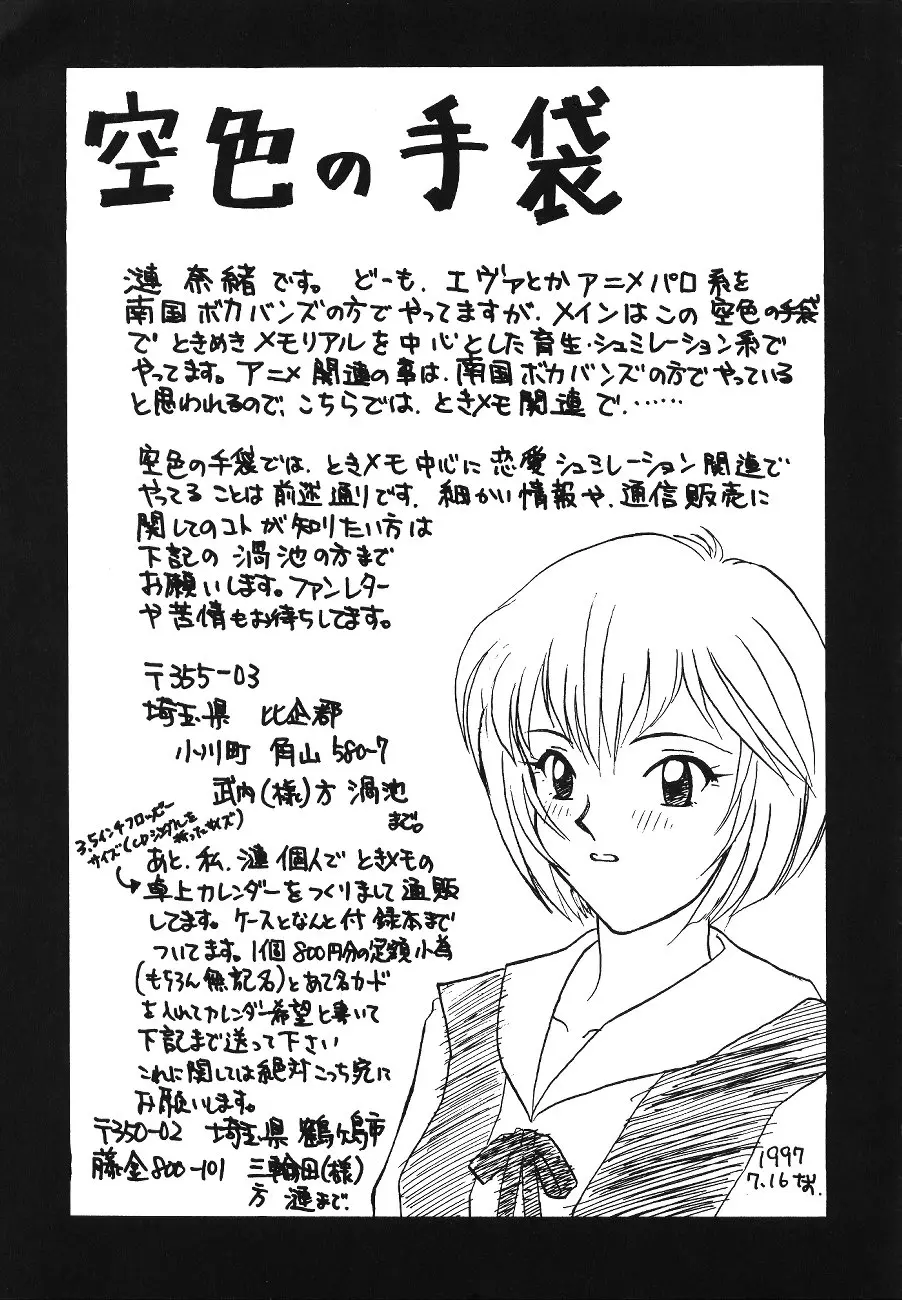 空色の手袋
漣 奈緒です。どーも、エヴァとかアニメパロ系を
南国ボカバンズの方でやってますが、メインはこの空色の手袋
でときめきメモリアルを中心とした育生・シュミレーション系で
やってます。アニメ関連の事は、南国ボカバンズの方でやっている
と思われるので、こちらでは、ときメモ関連で……
空色の手袋では、ときメモ中心に恋愛シュミレーション関連で
やってることは前述通りです。細かい情報や、通信販売に
関してのコトが知りたい方は
下記の渦池の方まで
お願いします。ファンレター
や苦情もお待ちしてます。
〒355-03
埼玉県 比企郡
小川町 角山 580-7
武内(様)方 渦池
まで。
3.5インチフロッピー
サイズ(CDシングルを
折ったサイズ)
あと、私、漣個人でときメモの
卓上カレンダーをつくりまして通販
してます。ケースとなんと付録本まで
ついてます。1個800円分の定額小為
(もちろん無記名)とあて名カード
を入れてカレンダー希望と書いて
下記まで送って下さい
これに関しては絶対こっち宛に
お願いします。
〒350-02 埼玉県鶴ヶ島市
藤金800-101 三輪田(様)
方 漣まで.
1997
7.16 なお.